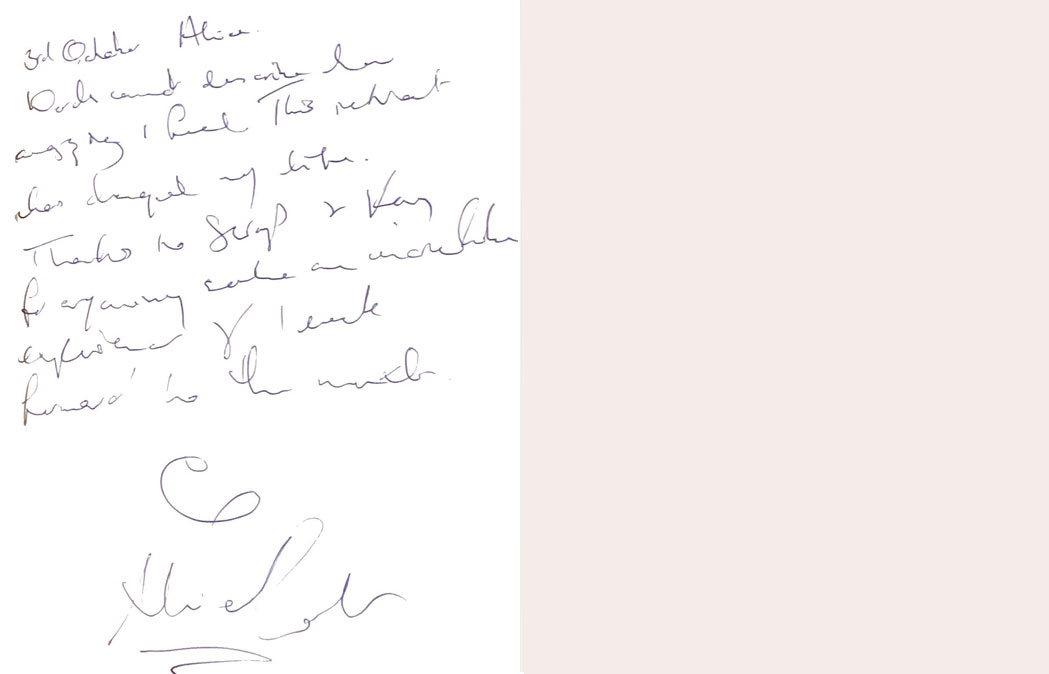 3rd October Alice.
Words cannot describe how
amazing I feel. This retreat
has changed my life.
Thanks to &
for organising such an incredible
experience & I
forward to the next